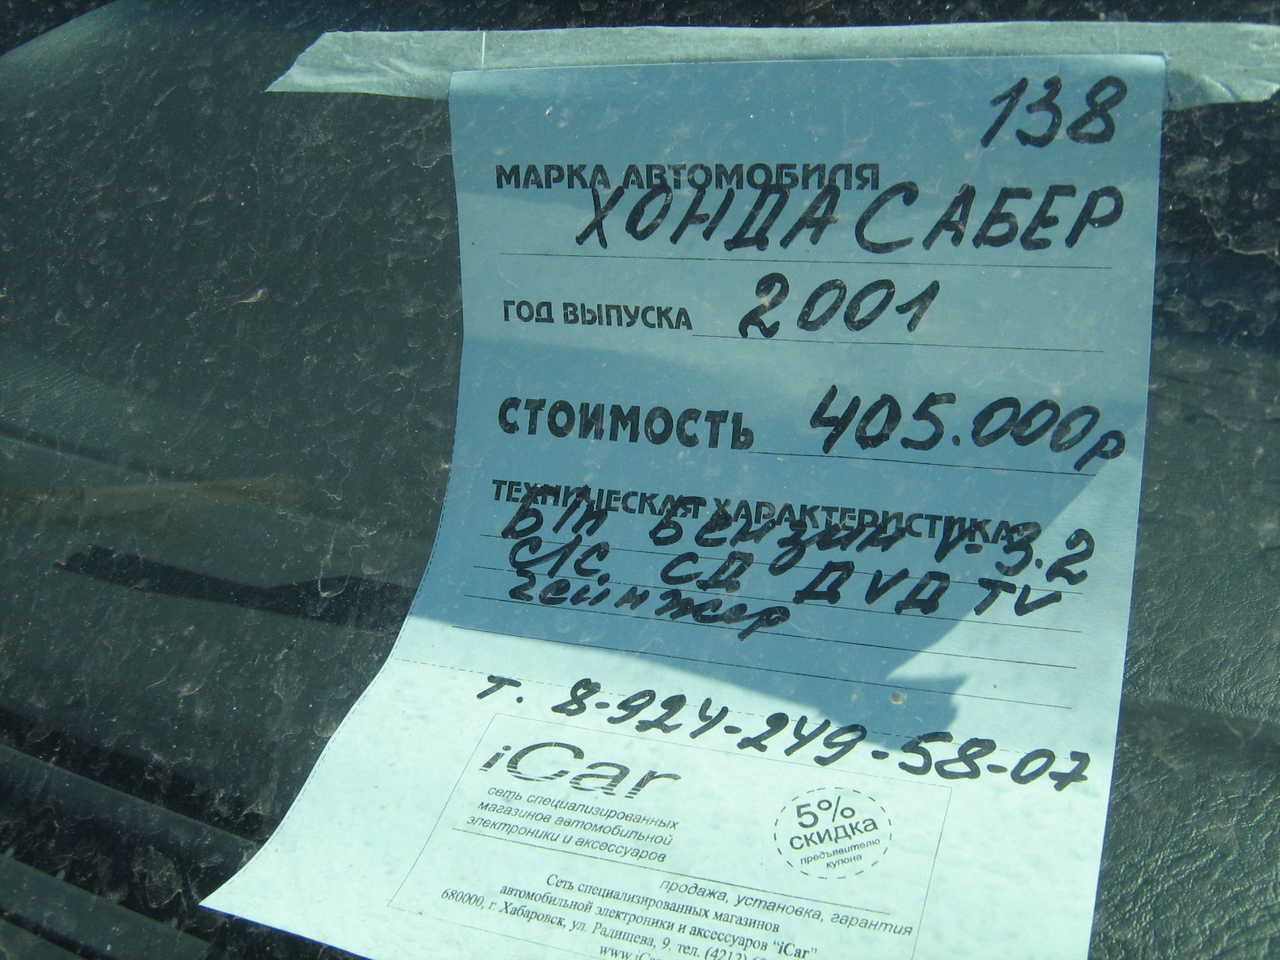 138
МАРКА АВТОМОБИЛЯ
ХОНДА САБЕР
ГОД ВЫПУСКА 2001
СТОИМОСТЬ 405.000р
ТЕХНИЧЕСКАЯ ХАРАКТЕРИСТИКА
Б/П Бензин V-3.2
С/С СД ДVД TV
чейнжер
т. 8-924-249-58-07
iCar
сеть специализированных
магазинов автомобильной
электроники и аксессуаров
5%
СКИДКА
предъявителю
купона
продажа, установка, гарантия
Сеть специализированных магазинов
автомобильной электроники и аксессуаров "iCar"
680000, г. Хабаровск, ул. Радищева, 9. тел. (4212)